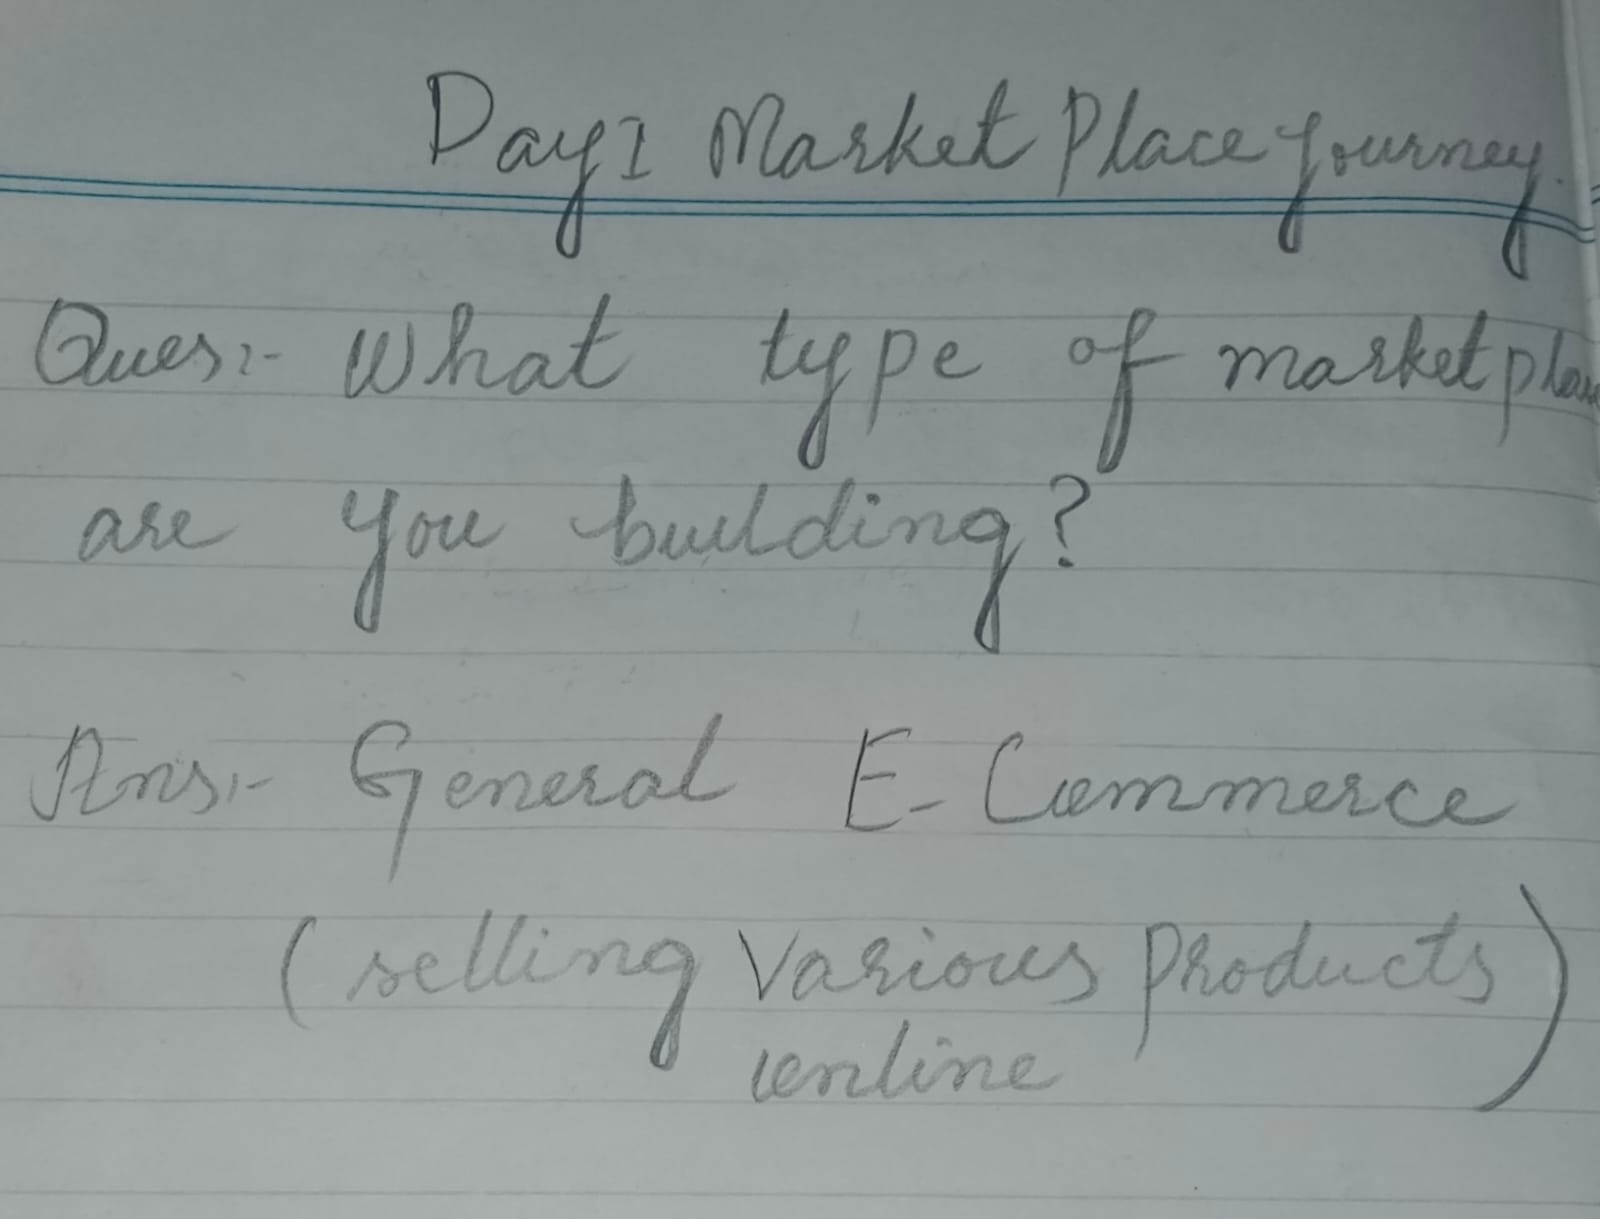 Day 1 Market Place Journey.
Ques:- What type of marketplace
are you building?
Ans:- General E-Commerce
(selling Various Products
online)